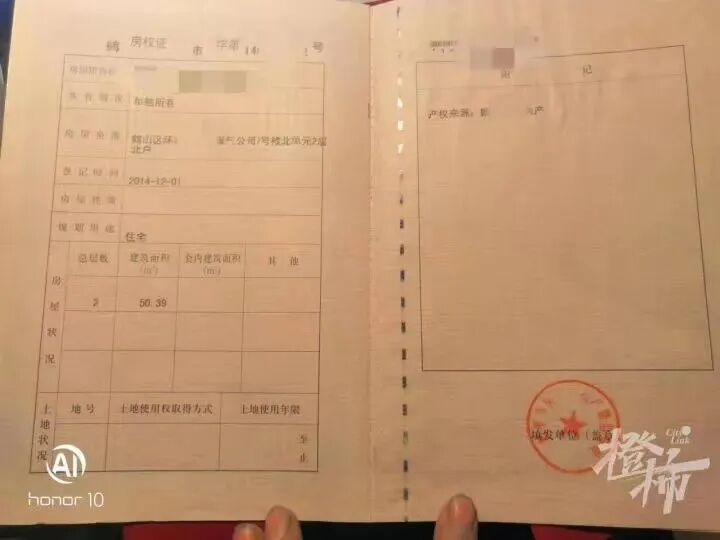 房权证 市 字第 号
房屋所有权人
共有情况 单独所有
房屋坐落 鹤山区 公司7号楼北单元2层
北户
登记时间 2014-12-01
房屋性质
规划用途 住宅
房屋状况
总层数 建筑面积(m²) 套内建筑面积(m²) 其他
2 50.39
土地状况
地号 土地使用权取得方式 土地使用年限
至
止
附 记
产权来源: 产
填发单位(盖章)
AI
honor 10
City Link
橙柿